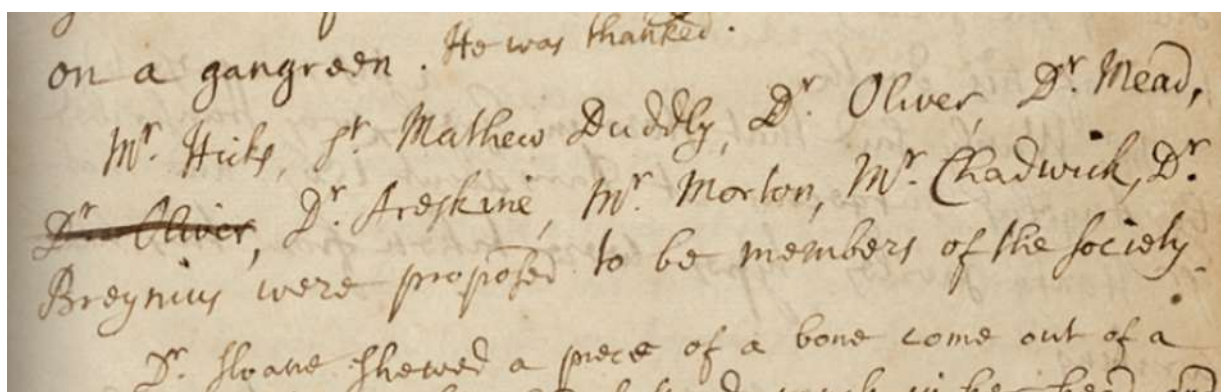 on a gangreen. He was thanked.
Mr. Hicks, Sr. Mathew Duddly, Dr. Oliver, Dr. Mead,
Dr Oliver, Dr. Areskine, Mr. Morton, Mr. Chadwick, Dr.
Breynius were proposed to be members of the Society.
Dr. Sloane shewed a piece of a bone come out of a